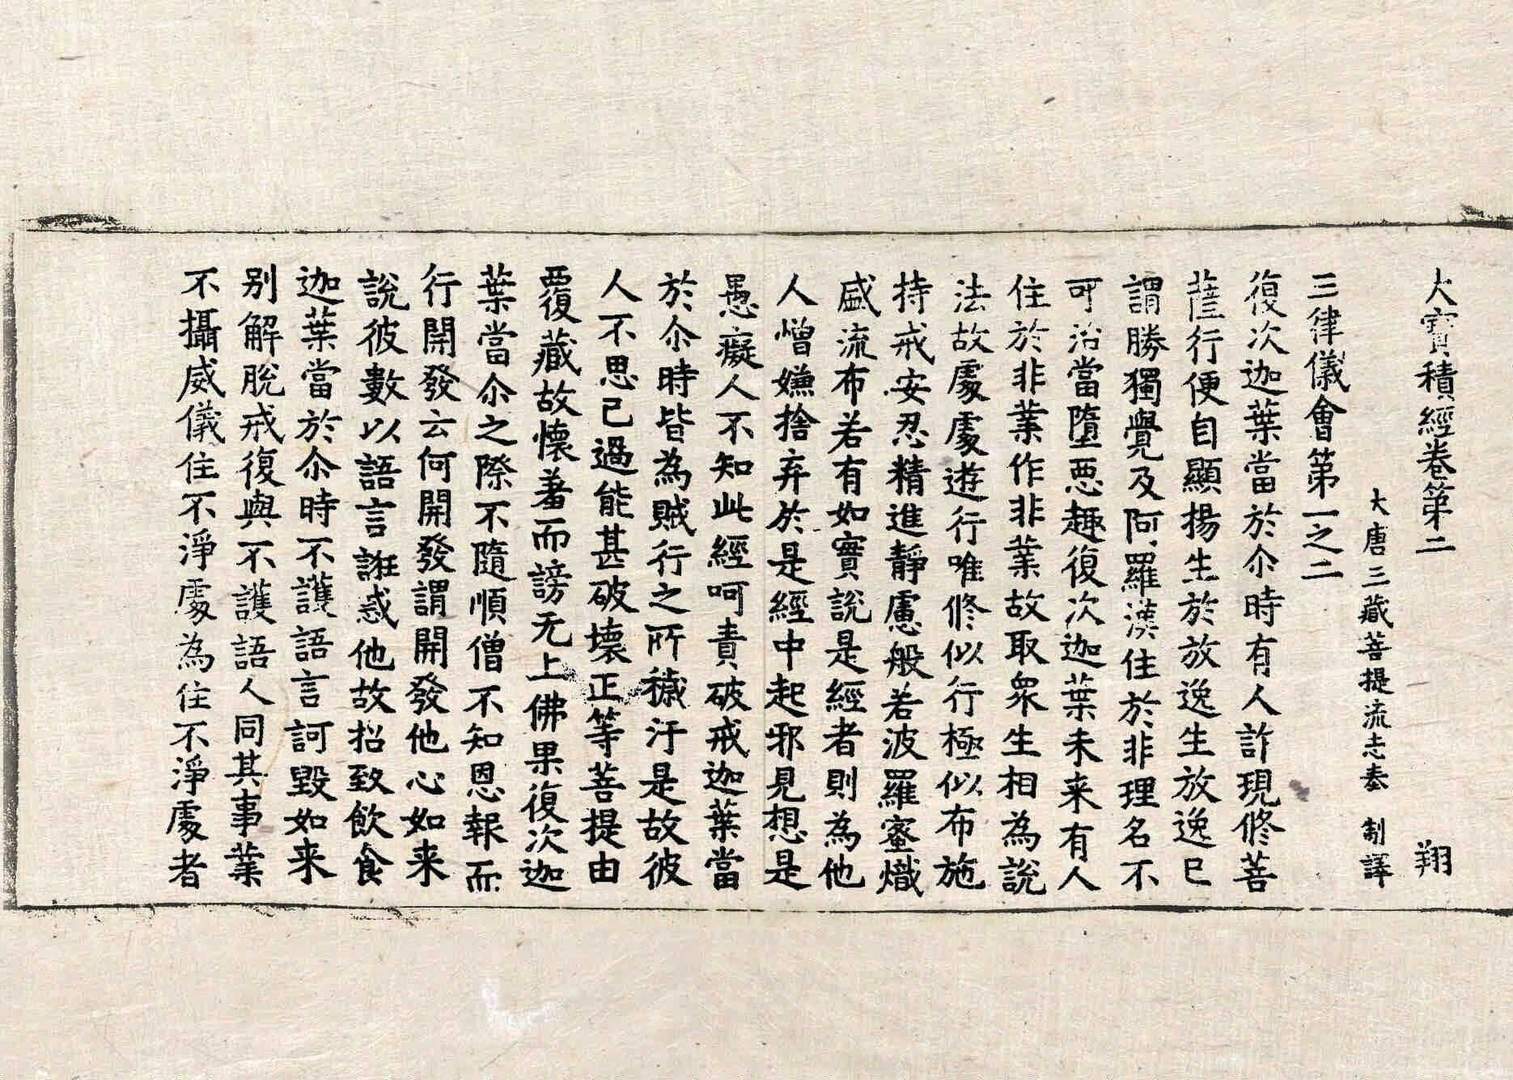 大寶積經卷第二 翔
大唐三藏菩提流志奉 制譯
三律儀會第一之二
復次迦葉當於尒時有人詐現修菩
薩行便自顯揚生於放逸生放逸已
謂勝獨覺及阿羅漢住於非理名不
可治當墮惡趣復次迦葉未来有人
住於非業作非業故取衆生相為說
法故處處遊行唯修似行極似布施
持戒安忍精進靜慮般若波羅蜜熾
盛流布若有如實說是經者則為他
人憎嫌捨弃於是經中起邪見想是
愚癡人不知此經呵責破戒迦葉當
於尒時皆為賊行之所穢汙是故彼
人不思己過能甚破壞正等菩提由
覆藏故懷著而謗无上佛果復次迦
葉當尒之際不隨順僧不知恩報而
行開發云何開發謂開發他心如来
說彼數以語言誑惑他故招致飲食
迦葉當於尒時不護語言訶毀如来
别解脫戒復與不護語人同其事業
不攝威儀住不淨處為住不淨處者